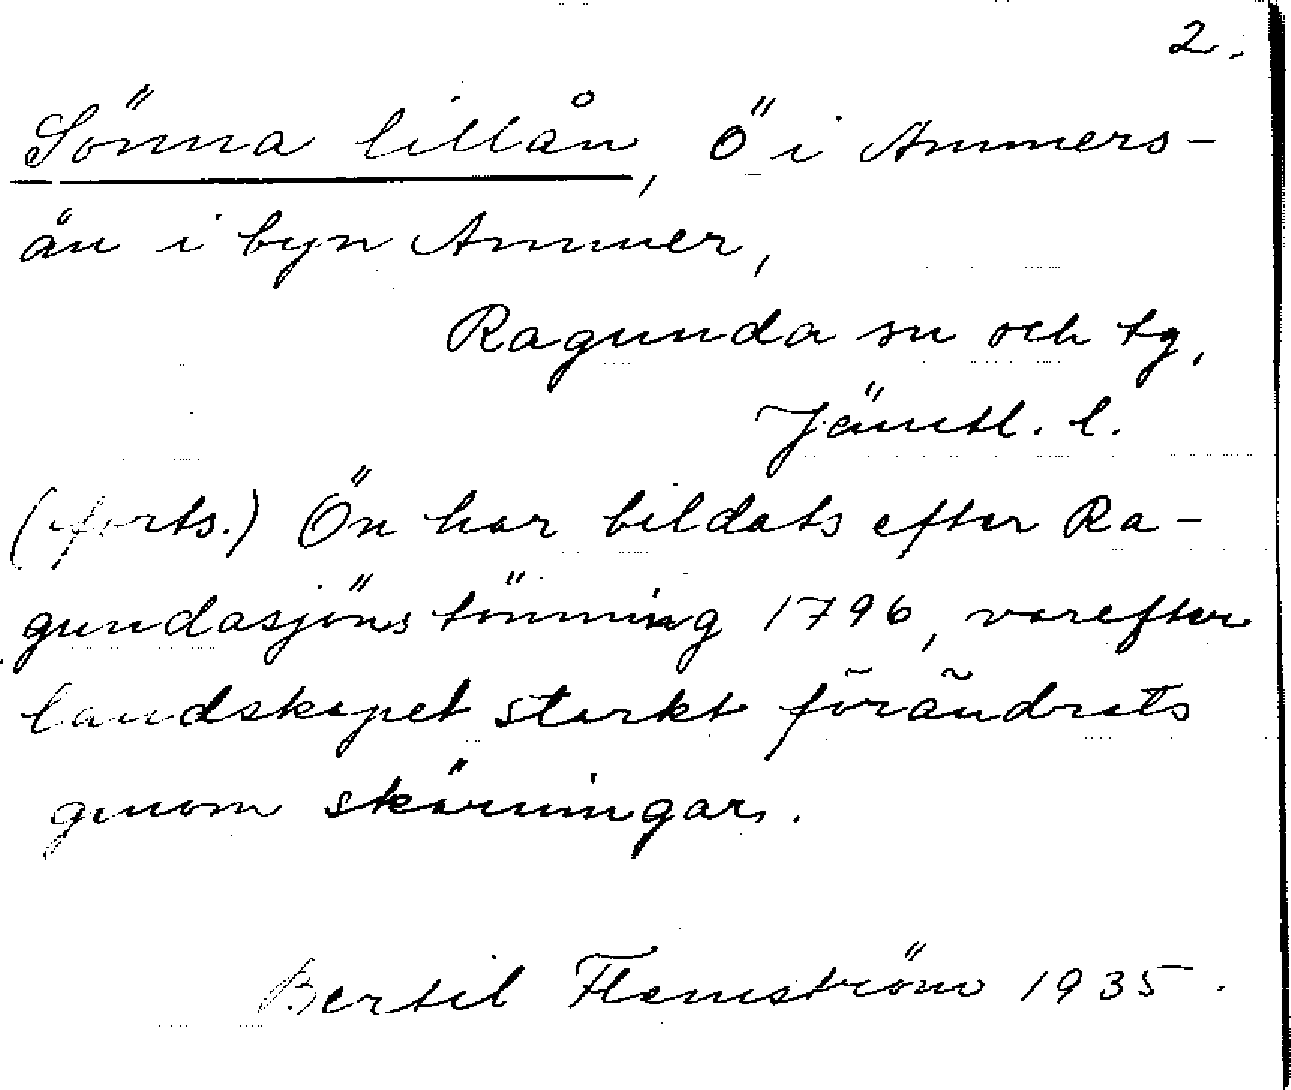 2.
Sönna lillån, Ö i Ammers-
ån i byn Ammer,
Ragunda sn och tg,
Jämtl. l.
(forts.) Ön har bildats efter Ra-
gundasjöns tömning 1796, varefter
landskapet starkt förändrats
genom skärningar.
Bertil Flemström 1935.